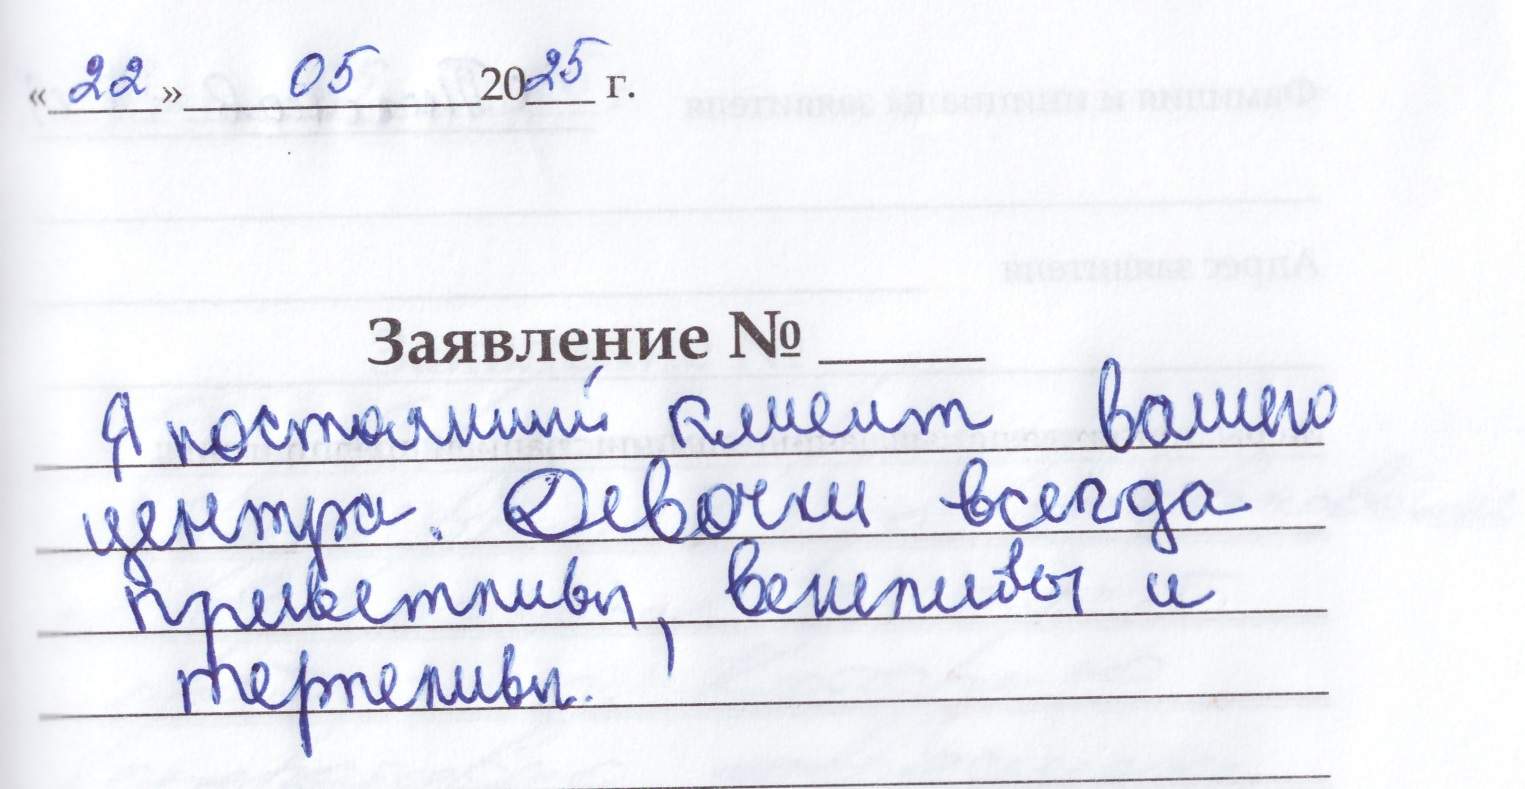 «22» 05 2025 г.
Заявление № ______
Я постоянный клиент вашего
центра. Девочки всегда
приветливы, вежливы и
терпеливы.